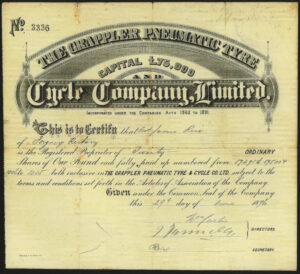 No. 3336
THE GRAPPLER PNEUMATIC TYRE
CAPITAL £75,000
AND
Cycle Company, Limited.
INCORPORATED UNDER THE COMPANIES ACTS 1862 TO 1891.
This is to Certify that
of
is the Registered Proprietor of Twenty ORDINARY
Shares of One Pound each fully paid up numbered from
to both inclusive in THE GRAPPLER PNEUMATIC TYRE & CYCLE CO. LTD. subject to the
terms and conditions set forth in the Articles of Association of the Company
Given under the Common Seal of the Company
this 29th day of June 1896
DIRECTORS.
SECRETARY.